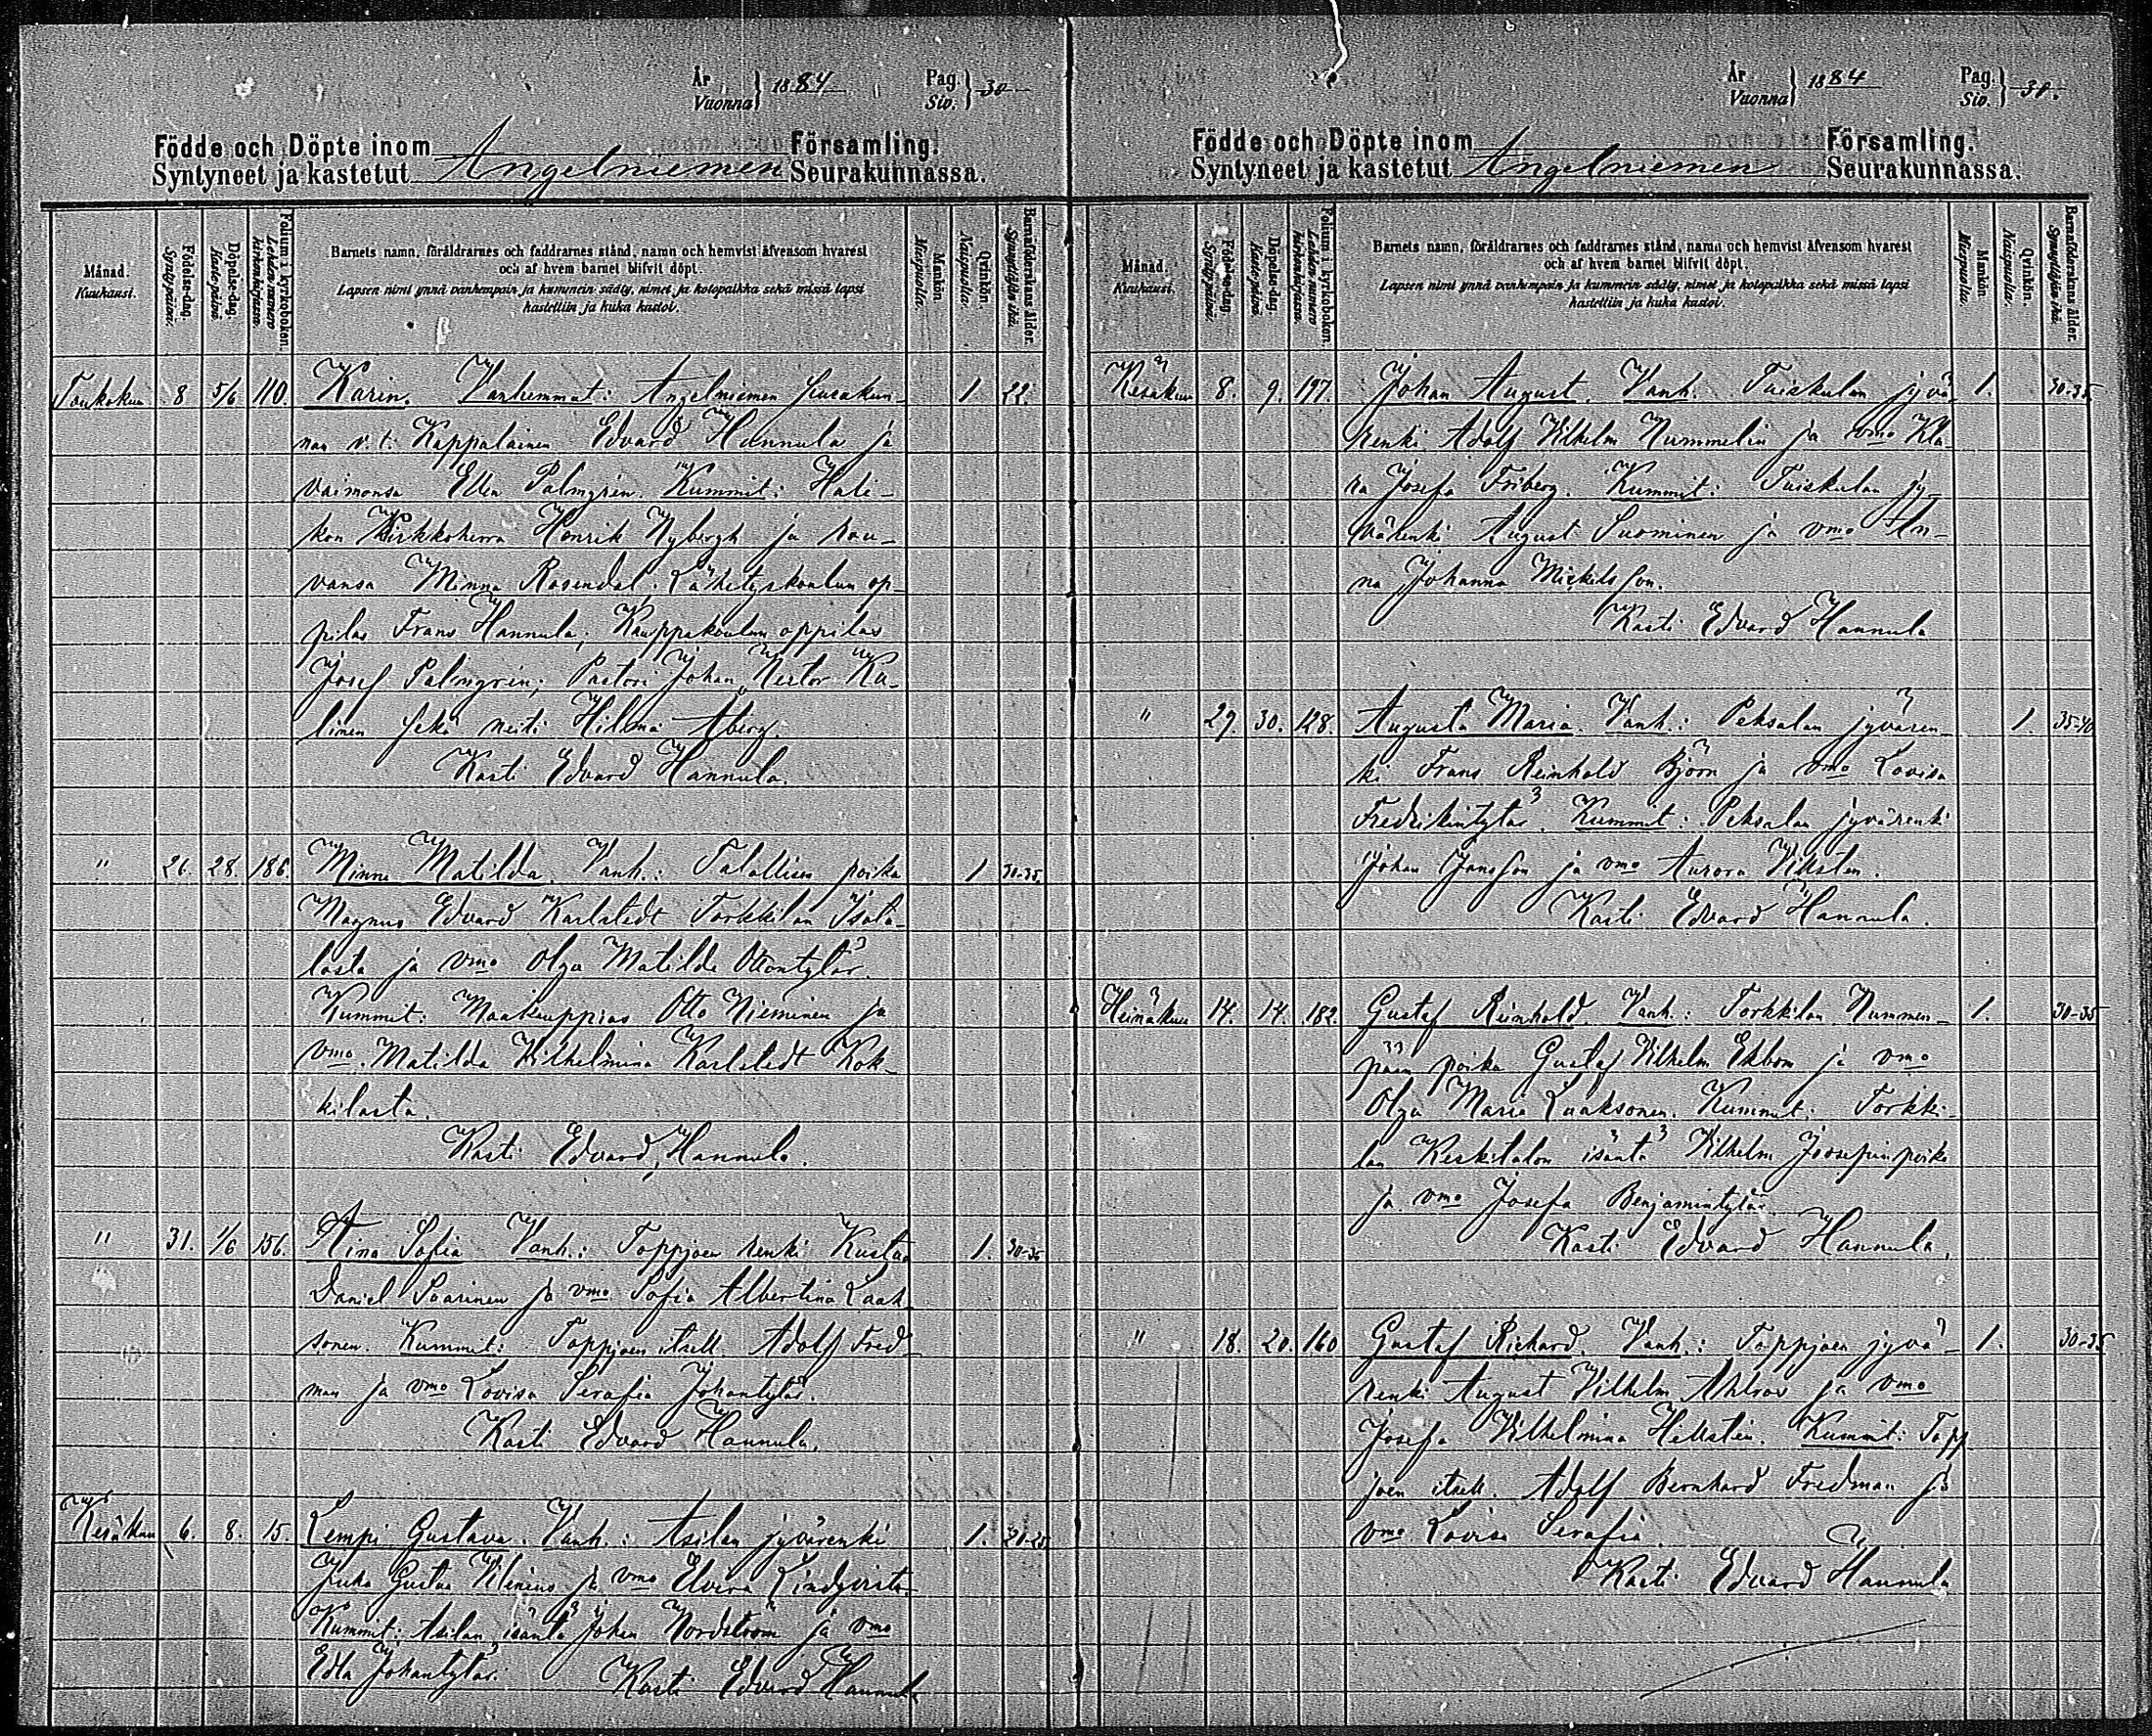 År
Vuonna } 1884 Pag.
Siv. } 30
Födde och Döpte inom Församling.
Syntyneet ja kastetut Angelniemen Seurakunnassa.
Månad.
Kuukausi.
Födelse-dag.
Syntypäivä.
Döpelse-dag.
Kastepäivä
Folium i kyrkoboken.
Lehden numero kirkonkirjassa.
Barnets namn, föräldrarnes och faddrarnes stånd, namn och hemvist äfvensom hvarest
och af hvem barnet blifvit döpt.
Lapsen nimi ynnä vanhempain ja kummein sääty, nimet ja kotopaikka sekä missä lapsi
kastettiin ja kuka kastoi.
Mankön
Miespuolia.
Qvinkön.
Naispuolia.
Barnaföderskans ålder.
Synnyttäjän ikä.
Toukokuu 8 5/6 110. Karin. Vanhemmat: Angelniemen seurakun- 1 22.
nan v. t. Kappalainen Edvard Hannula ja
vaimonsa Ellen Palmgrén. Kummit: Hali-
kon Kirkkoherra Henrik Nybergh ja rou-
vansa Minna Rosendal, Lähetyskoulun op-
pilas Frans Hannula, Kauppakoulun oppilas
Josef Palmgrén; Pastori Johan Nestor Ka-
linen sekä neiti Hilma Åberg.
Kasti Edvard Hannula.
" 26. 28. 186. Minna Matilda. Vanh.: Talollisen poika 1 30-35.
Magnus Edvard Karlstedt Torkkilan Isota-
losta ja vmo Olga Matilda Ottontytär.
Kummit: Maakauppias Otto Nieminen ja
vmo. Matilda Wilhelmina Karlstedt Kok-
kilasta.
Kasti Edvard Hannula.
" 31. 1/6 156. Aina Sofia Vanh.: Toppjoen renki Kustaa 1. 30-35
Daniel Saarinen ja vmo Sofia Albertina Laak-
sonen. Kummit: Toppjoen itsell. Adolf Fred-
man ja vmo Lovisa Serafia Johantytär.
Kasti Edvard Hannula.
Kesäkuu 6. 8. 15. Lempi Gustava. Vanh.: Asilan jyvärenki 1. 20-25
Juha Gustaa Vilenius ja vmo Elvira Lindqvist.
Kummit: Asilan isäntä Johan Nordström ja vmo
Edla Johantytär. Kasti Edvard Hannula
År
Vuonna } 1884 Pag.
Siv. } 30.
Födde och Döpte inom Församling.
Syntyneet ja kastetut Angelniemen Seurakunnassa.
Månad.
Kuukausi.
Födelse-dag.
Syntypäivä.
Döpelse-dag.
Kastepäivä.
Folium i kyrkoboken
Lehden numero kirkonkirjassa.
Barnets namn, föräldrarnes och faddrarnes stånd, namn och hemvist äfvensom hvarest
och af hvem barnet blifvit döpt.
Lapsen nimi ynnä vanhempain ja kummein sääty, nimet ja kotopaikka sekä missä lapsi
kastettiin ja kuka kastoi.
Mankön
Miespuolia.
Qvinkön.
Naispuolia.
Barnaföderskans ålder.
Synnyttäjän ikä.
Kesäkuu 8. 9. 197. Johan August. Vanh. Tuiskulan jyvä- 1. 30-35.
renki Adolf Vilhelm Nummelin ja vmo Kla-
ra Josefa Friberg. Kummit: Tuiskulan jy-
värenki August Suominen ja vmo An-
na Johanna Mickelsson.
Kasti Edvard Hannula
" 29. 30. 128. Augusta Maria. Vanh.: Peksalan jyvären- 1. 35-40
ki Frans Reinhold Björn ja vmo Lovisa
Fredrikintytär. Kummit: Peksalan jyvärenki
Johan Jansson ja vmo Aurora Vikstén.
Kasti Edvard Hannula.
Heinäkuu 14. 14. 182. Gustaf Reinhold. Vanh.: Torkkilan Nummen- 1. 30-35
pään poika Gustaf Vilhelm Ekbom ja vmo
Olga Maria Laaksonen. Kummit: Torkki-
lan Keskitalon isäntä Vilhelm Joosefinpoika
ja vmo Josefa Benjamintytär.
Kasti Edvard Hannula.
" 18. 20. 160 Gustaf Richard. Vanh.: Toppjoen jyvä- 1. 30-35
renki August Vilhelm Ahlros ja vmo
Josefa Vilhelmina Hellstén. Kummit: Topp
joen itsell. Adolf Bernhard Fredman ja
vmo Lovisa Serafia.
Kasti Edvard Hannula